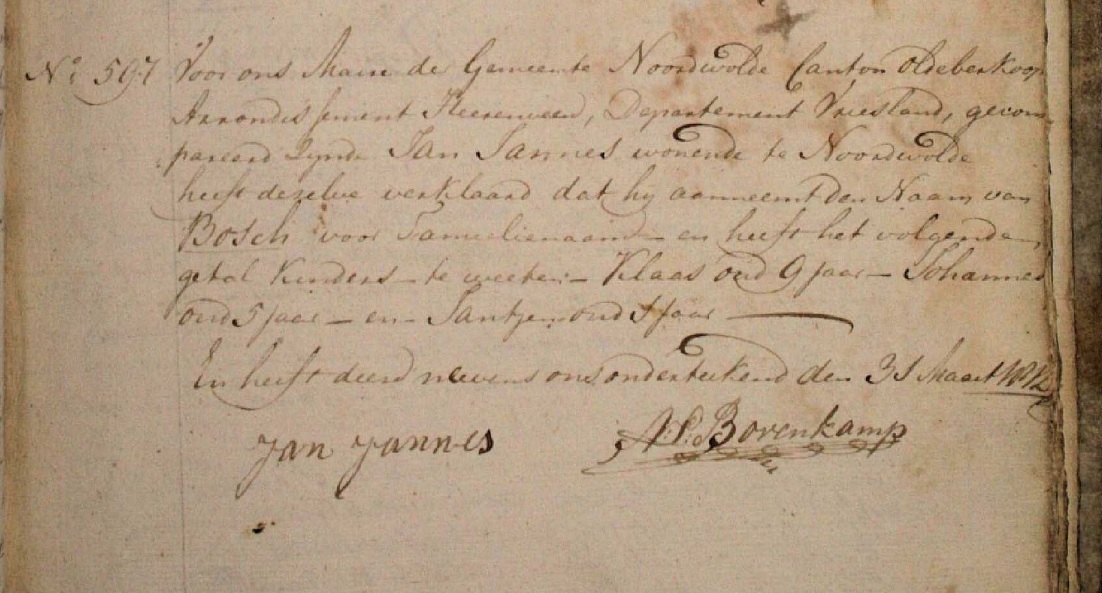 No 597 Voor ons Maire der Gemeente Noordwolde Canton Oldeberkoop
Arrondissement Heerenveen, Departement Vriesland, gecom-
pareerd zynde Jan Jannes wonende te Noordwolde
heeft dezelve verklaard dat hy aanneemt den Naam van
Bosch voor Familienaam en heeft het volgende
getal Kinders te weeten - Klaas oud 9 jaar - Johannes
oud 5 jaar - en - Jantjen oud 1 jaar
En heeft deeze nevens ons ondertekend den 31 Maart 1812
Jan Jannes A:P: Bovenkamp